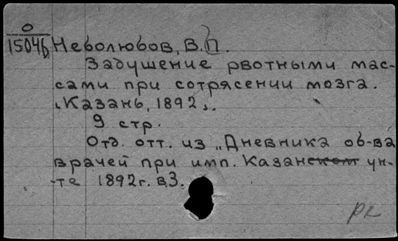 0
15046
Неволюбов, В.П.
Задушение рвотными мас-
сами при сотрясении мозга.
„Казань, 1892„.
9 стр.
Отд. отт. из „Дневника об-ва
врачей при имп. Казанском ун-
те 1892г. в.3.